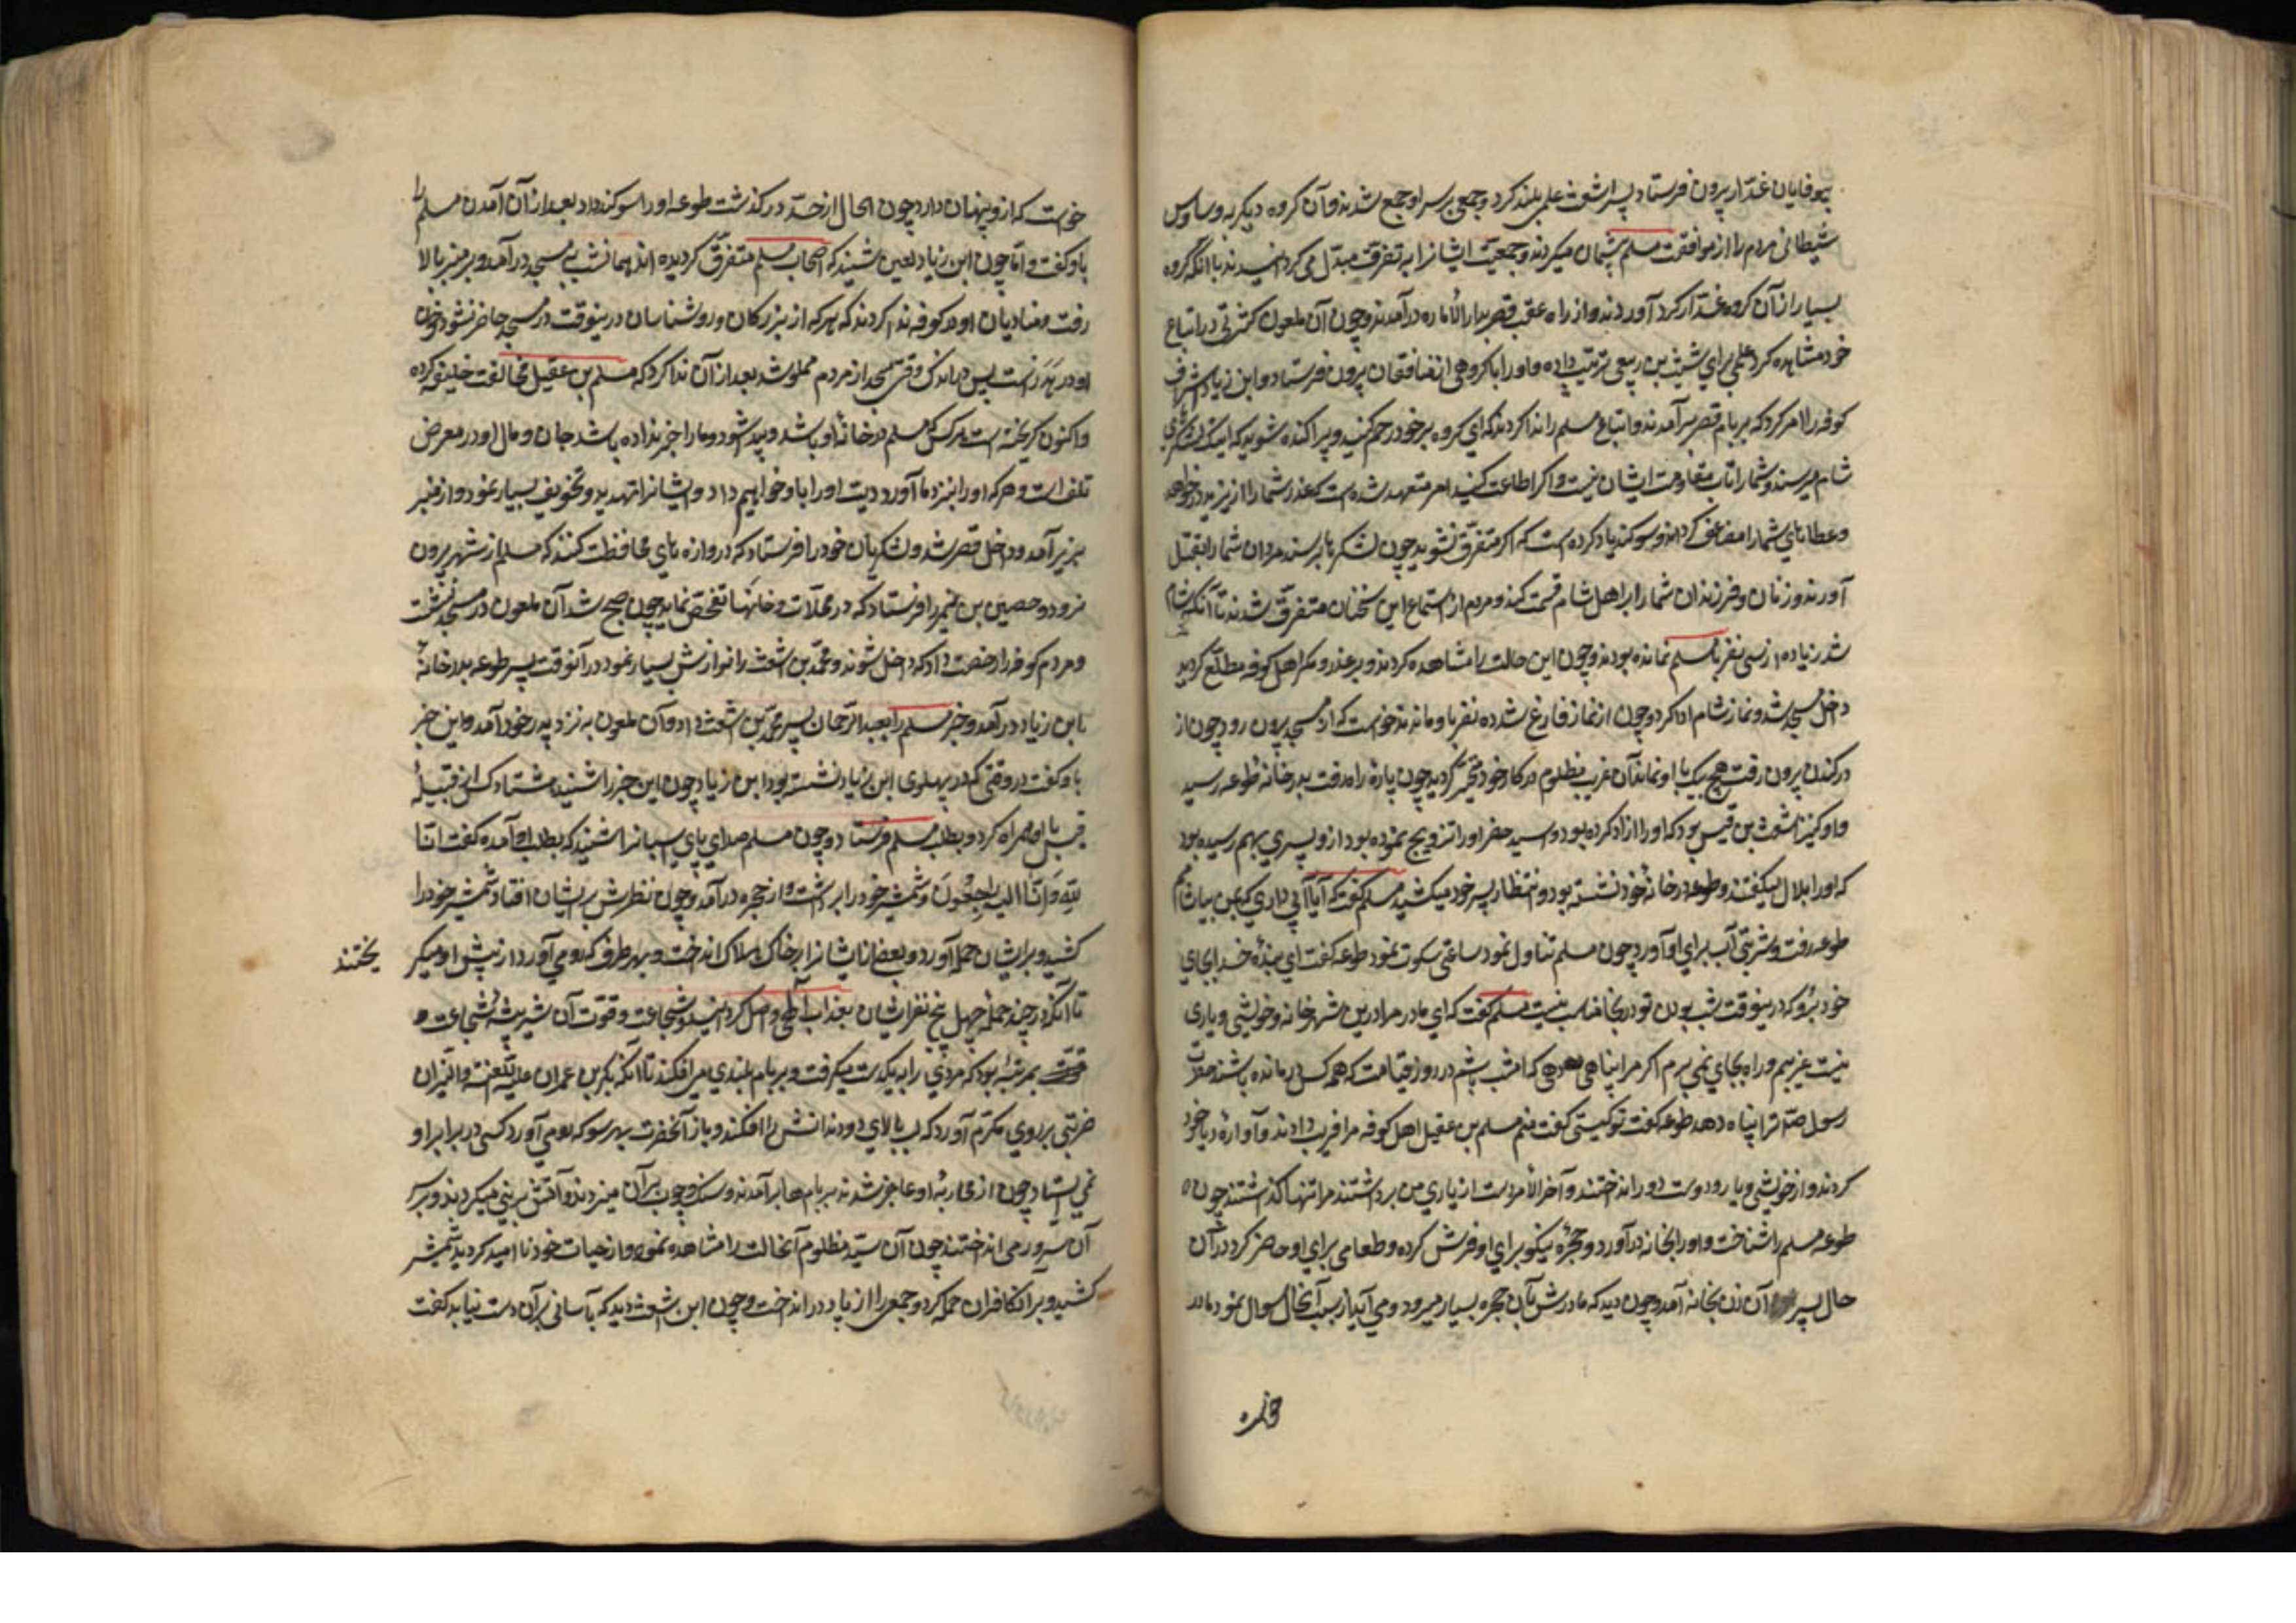 بیوفایان غدّار بیرون فرستاد پسر اشعث علمی بلند کرد و جمعی بر سر او جمع شدند و آن گروه دیگر به وساوس
شیطانی مردم را از موافقت مسلم پشیمان میکردند و جمعیّت ایشانرا به تفرقت مبدّل می کردانیدند با آنکه گروه
بسیار از آن گروه غدّار گرد آوردند و از راه عقب قصر بدار الأماره درآمدند و چون آن ملعون کثرتی در اتباع
خود مشاهده کرد علمی برای شیث بن ربیعی ترتیب داده و او را با گروهی از منافقان بیرون فرستاد و ابن زیاد اشراف
کوفه را امر کرد که بر بام قصر برآمدند و اتباع مسلم را ندا کردند که ای گروه بر خود رحم کنید و پراکنده شوید که اینک لشکرهای
شام میرسند و شما را تاب مقاومت ایشان نیست و اگر اطاعت کنید امیر متعهد شده است که عذر شما را از یزید درخواهد
و عطاهای شما را مضاعف کرداند و سوکند یاد کرده است که اگر متفرّق نشوید چون لشکرها برسند مردان شما را بقتل
آورند و زنان و فرزندان شما را بر اهل شام قسمت کنند و مردم از استماع این سخنان متفرّق شدند تا آنکه شام
شد زیاده از سی نفر با مسلم نمانده بودند و چون این حالت را مشاهده کردند و بر غدر و مکر اهل کوفه مطلّع کردید
داخل مسجد شد و نماز شام ادا کرد و چون از نماز فارغ شد ده نفر با او ماندند خواست که از مسجد بیرون رود چون از
در کنده بیرون رفت هیچ یک با او نماند آن غریب مظلوم در کار خود متحیّر گردید چون پارهٔ راه رفت بدر خانه طوعه رسید
و او کنیز اشعث بن قیس بود که او را آزاد کرده بود و اسید حضرا و را تزویج نموده بود از و پسری بهم رسیده بود
که او را بلال میگفتند و طوعه در خانهٔ خود نشسته بود و انتظار پسر خود میکشید مسلم گفت که آیا آبی داری که بمن بیاشامم
طوعه رفت و شربتی آب برای او آورد چون مسلم تناول نمود ساعتی سکوت نمود طوعه گفت ای بندهٔ خدا بجای
خود برو که درینوقت شب بودن تو در اینجا مناسب نیست مسلم گفت که ای مادر مرا درین شهر خانه و خویشی و یاری
نیست غریبم و راه بجای نمی برم اگر مرا پناهی دهی که امشب باشم در روز قیامت که همه کس درمانده باشند حضرت
رسول صلم ترا پناه دهد طوعه گفت تو کیستی گفت منم مسلم بن عقیل اهل کوفه مرا فریب دادند و آوارهٔ دیار خود
کردند و از خویشی و یار و دوست دور انداختند و آخر الأمر دست از یاری من برداشتند مرا تنها گذاشتند چون
طوعه مسلم را شناخت و او را بخانه درآورد و حجرهٔ نیکو برای او فرش کرده و طعامی برای او حاضر کرد در آن
حال پسر آن زن بخانه آمد و چون دید که مادرش بآن حجره بسیار میرود و می آید از سبب آنحال سوال نمود مادر
خواست که از و پنهان دارد چون الحال از حدّ درکذشت طوعه او را سوکند داد بعد از آن آمدن مسلم را
باو کفت و امّا چون ابن زیاد لعین شنید که اصحاب مسلم متفرّق کردیده اند همانشب بمسجد درآمد و بر منبر بالا
رفت و منادیان او در کوفه ندا کردند که هر که از بزرکان و روشناسان درینوقت در مسجد حاضر نشود خون
او در هَدَر است پس در اندک وقتی مسجد از مردم مملو شد بعد از آن ندا کرد که مسلم بن عقیل مخالفت خلیفه کرده
و اکنون کریخته است هر کس که مسلم در خانهٔ او باشد و پیدا شود و ما را خبر نداده باشد جان و مال او در معرض
تلف است و هر که او را بنزد ما آورد دیت او را باو خواهیم داد و ایشانرا تهدید و تخویف بسیار نمود و از منبر
بزیر آمد و داخل قصر شد و لشکریان خود را فرستاد که دروازه های محافظت کنند که مسلم از شهر بیرون
نرود و حصین بن نمیر را فرستاد که در محلّات و خانها تفحّص نماید چون صبح شد آن ملعون در مسجد نشست
و مردم کوفه را رخصت داد که داخل شوند و محمّد بن اشعث را نوازش بسیار نمود در آنوقت پسر طوعه بدر خانهٔ
ابن زیاد درآمد و خبر مسلم را بعبد الرّحمان پسر محمّد بن اشعث داد و آن ملعون به نزد پدر خود آمد و این خبر
باو گفت در وقتی که در پهلوی ابن زیاد نشسته بود ابن زیاد چون این خبر را شنید هشتاد کس از قبیلهٔ
قیس با او همراه کرد و بطلب مسلم فرستاد و چون مسلم صدای پای اسبانرا شنید که بطلب او آمده گفت انّا
لِلّهِ وَ اِنّا الیهِ راجِعُونَ و شمشیر خود را برداشت و از حجره درآمد و چون نظرش بر ایشان افتاد شمشیر خود را
کشید و بر ایشان حمله آورد و بعضی از ایشانرا بر خاک هلاک انداخت و بهر طرف که رو می آورد از پیش او میکر
یختند
تا آنکه در چند حمله چهل پنج نفر ایشان بعذاب آلهی واصل کردانید و شجاعت و قوّت آن شیر بیشهٔ شجاعت و
بمرتبه بود که مردی را بیکدست میگرفت و بر بام بلندی می افکند تا آنکه بکر بن عمران علیه اللّعنة و النیران
ضربتی بر روی مکرّم آورد که لب بالای دو دندانش را افکند و باز آنحضرت بهر سو که رو می آورد کسی در برابر او
نمی ایستاد چون از محاربهٔ او عاجز شدند بر بامها برآمدند و سنک و چوب بر آن میزدند و آتش بر نی میکردند و بر سر
آن سرور می انداختند چون آن سیّد مظلوم آنحالت را مشاهده نمود و از حیات خود نا امید کردید شمشیر
کشید و بر آن کافران حمله کرد و جمعی را از پا در انداخت و چون ابن اشعث دید که بآسانی بر آن دست نیابد کفت